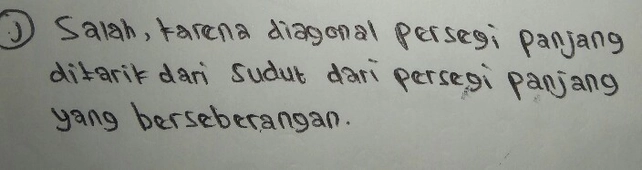 J) Salah, karena diagonal persegi panjang
ditarik dari sudut dari persegi panjang
yang berseberangan.